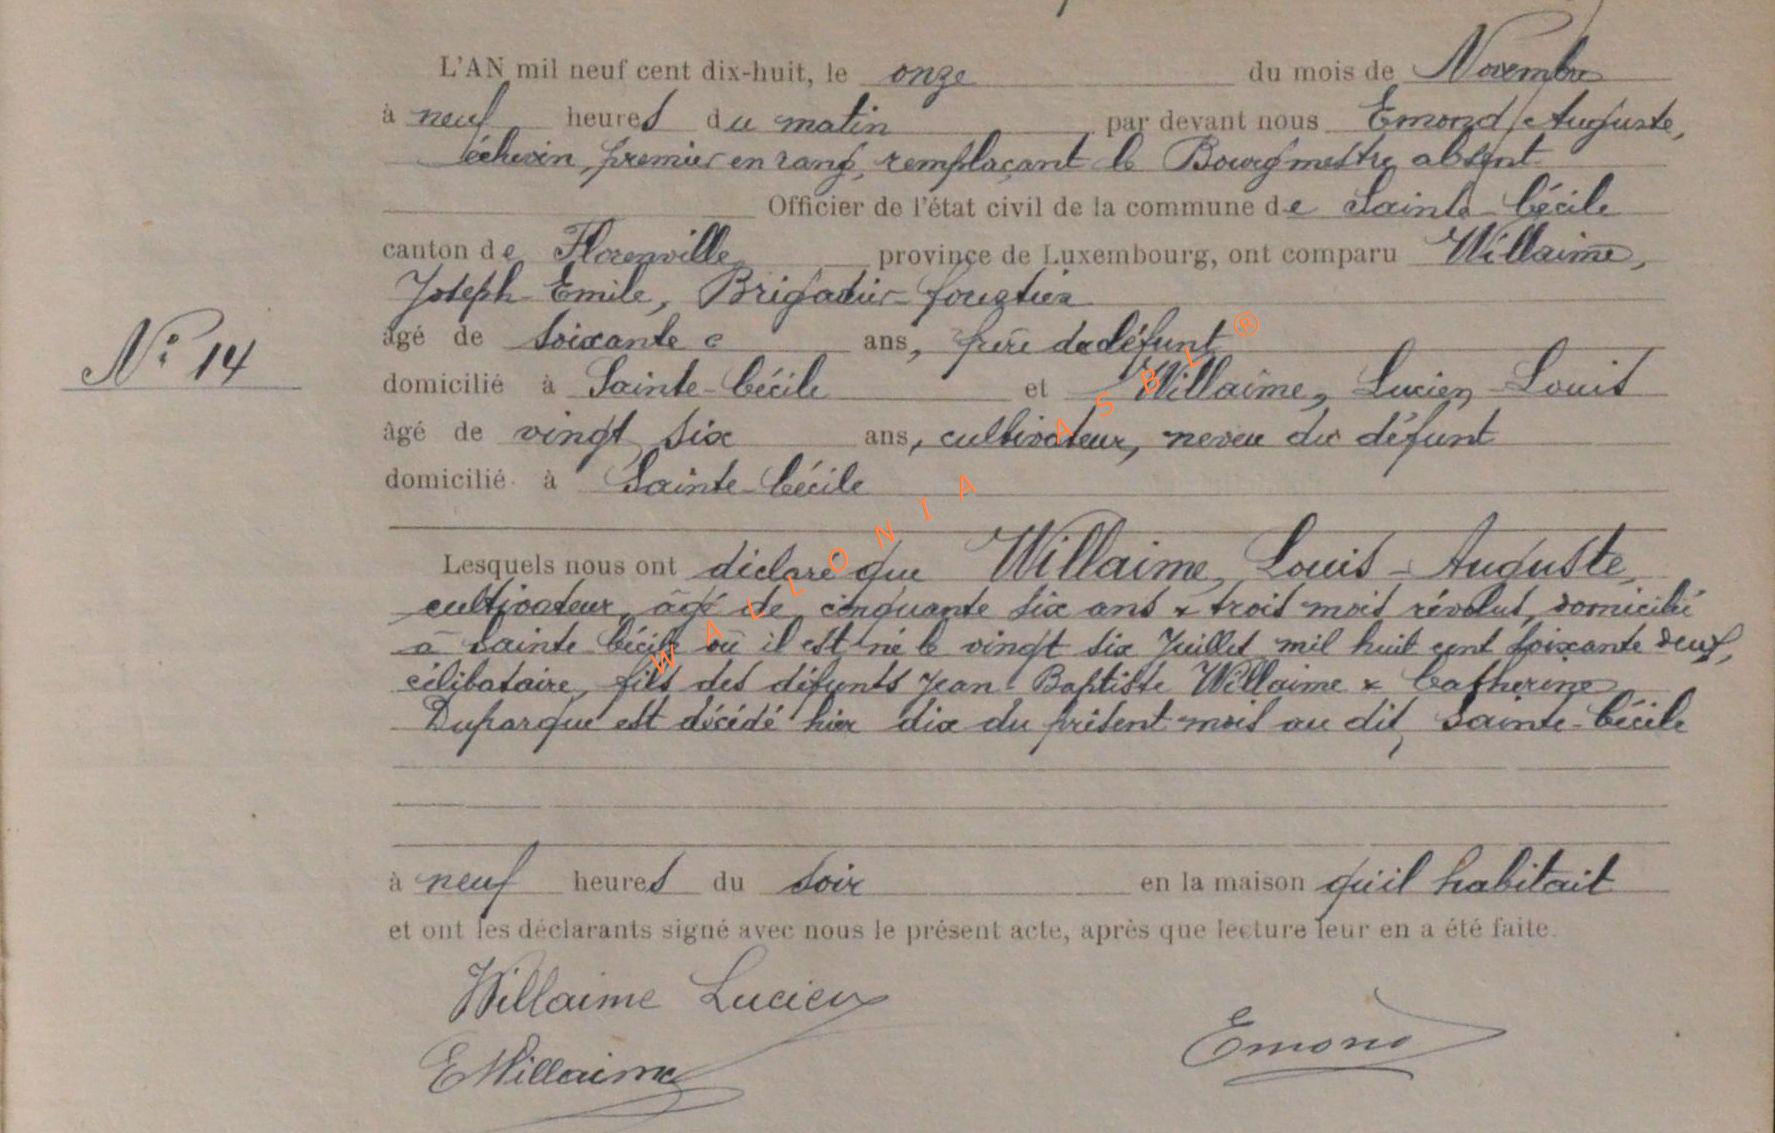 L'AN mil neuf cent dix-huit, le onze du mois de Novembre
à neuf heures du matin par devant nous Emond Auguste,
échevin, premier en rang, remplaçant le Bourgmestre absent
Officier de l'état civil de la commune de Sainte-Cécile
canton de Florenville province de Luxembourg, ont comparu Willaime,
Joseph Emile, Brigadier-forestier
N° 14
âgé de soixante ans, frère du défunt
domicilié à Sainte-Cécile et Willaime, Lucien, Louis
âgé de vingt six ans, cultivateur, neveu du défunt
domicilié à Sainte-Cécile
Lesquels nous ont déclaré que Willaime, Louis-Auguste,
cultivateur, âgé de cinquante six ans & trois mois révolus, domicilié
à Sainte Cécile où il est né le vingt six Juillet mil huit cent soixante deux,
célibataire, fils des défunts Jean Baptiste Willaime & Catherine
Duparque est décédé hier dix du présent mois au dit Sainte-Cécile
à neuf heures du soir en la maison qu'il habitait
et ont les déclarants signé avec nous le présent acte, après que lecture leur en a été faite.
Willaime Lucien
EWillaime
Emond
WALLONIA ASBL ®